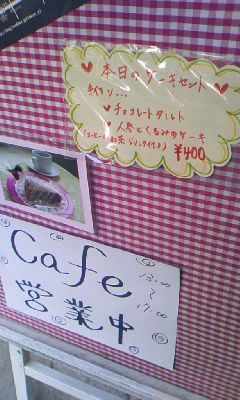 本日のケーキセット
手作り...
チョコレートタルト
人参とくるみのケーキ
(コーヒーor お茶 ドリンク付き)
¥400
Cafe
営業中
13:00
〜
17:00